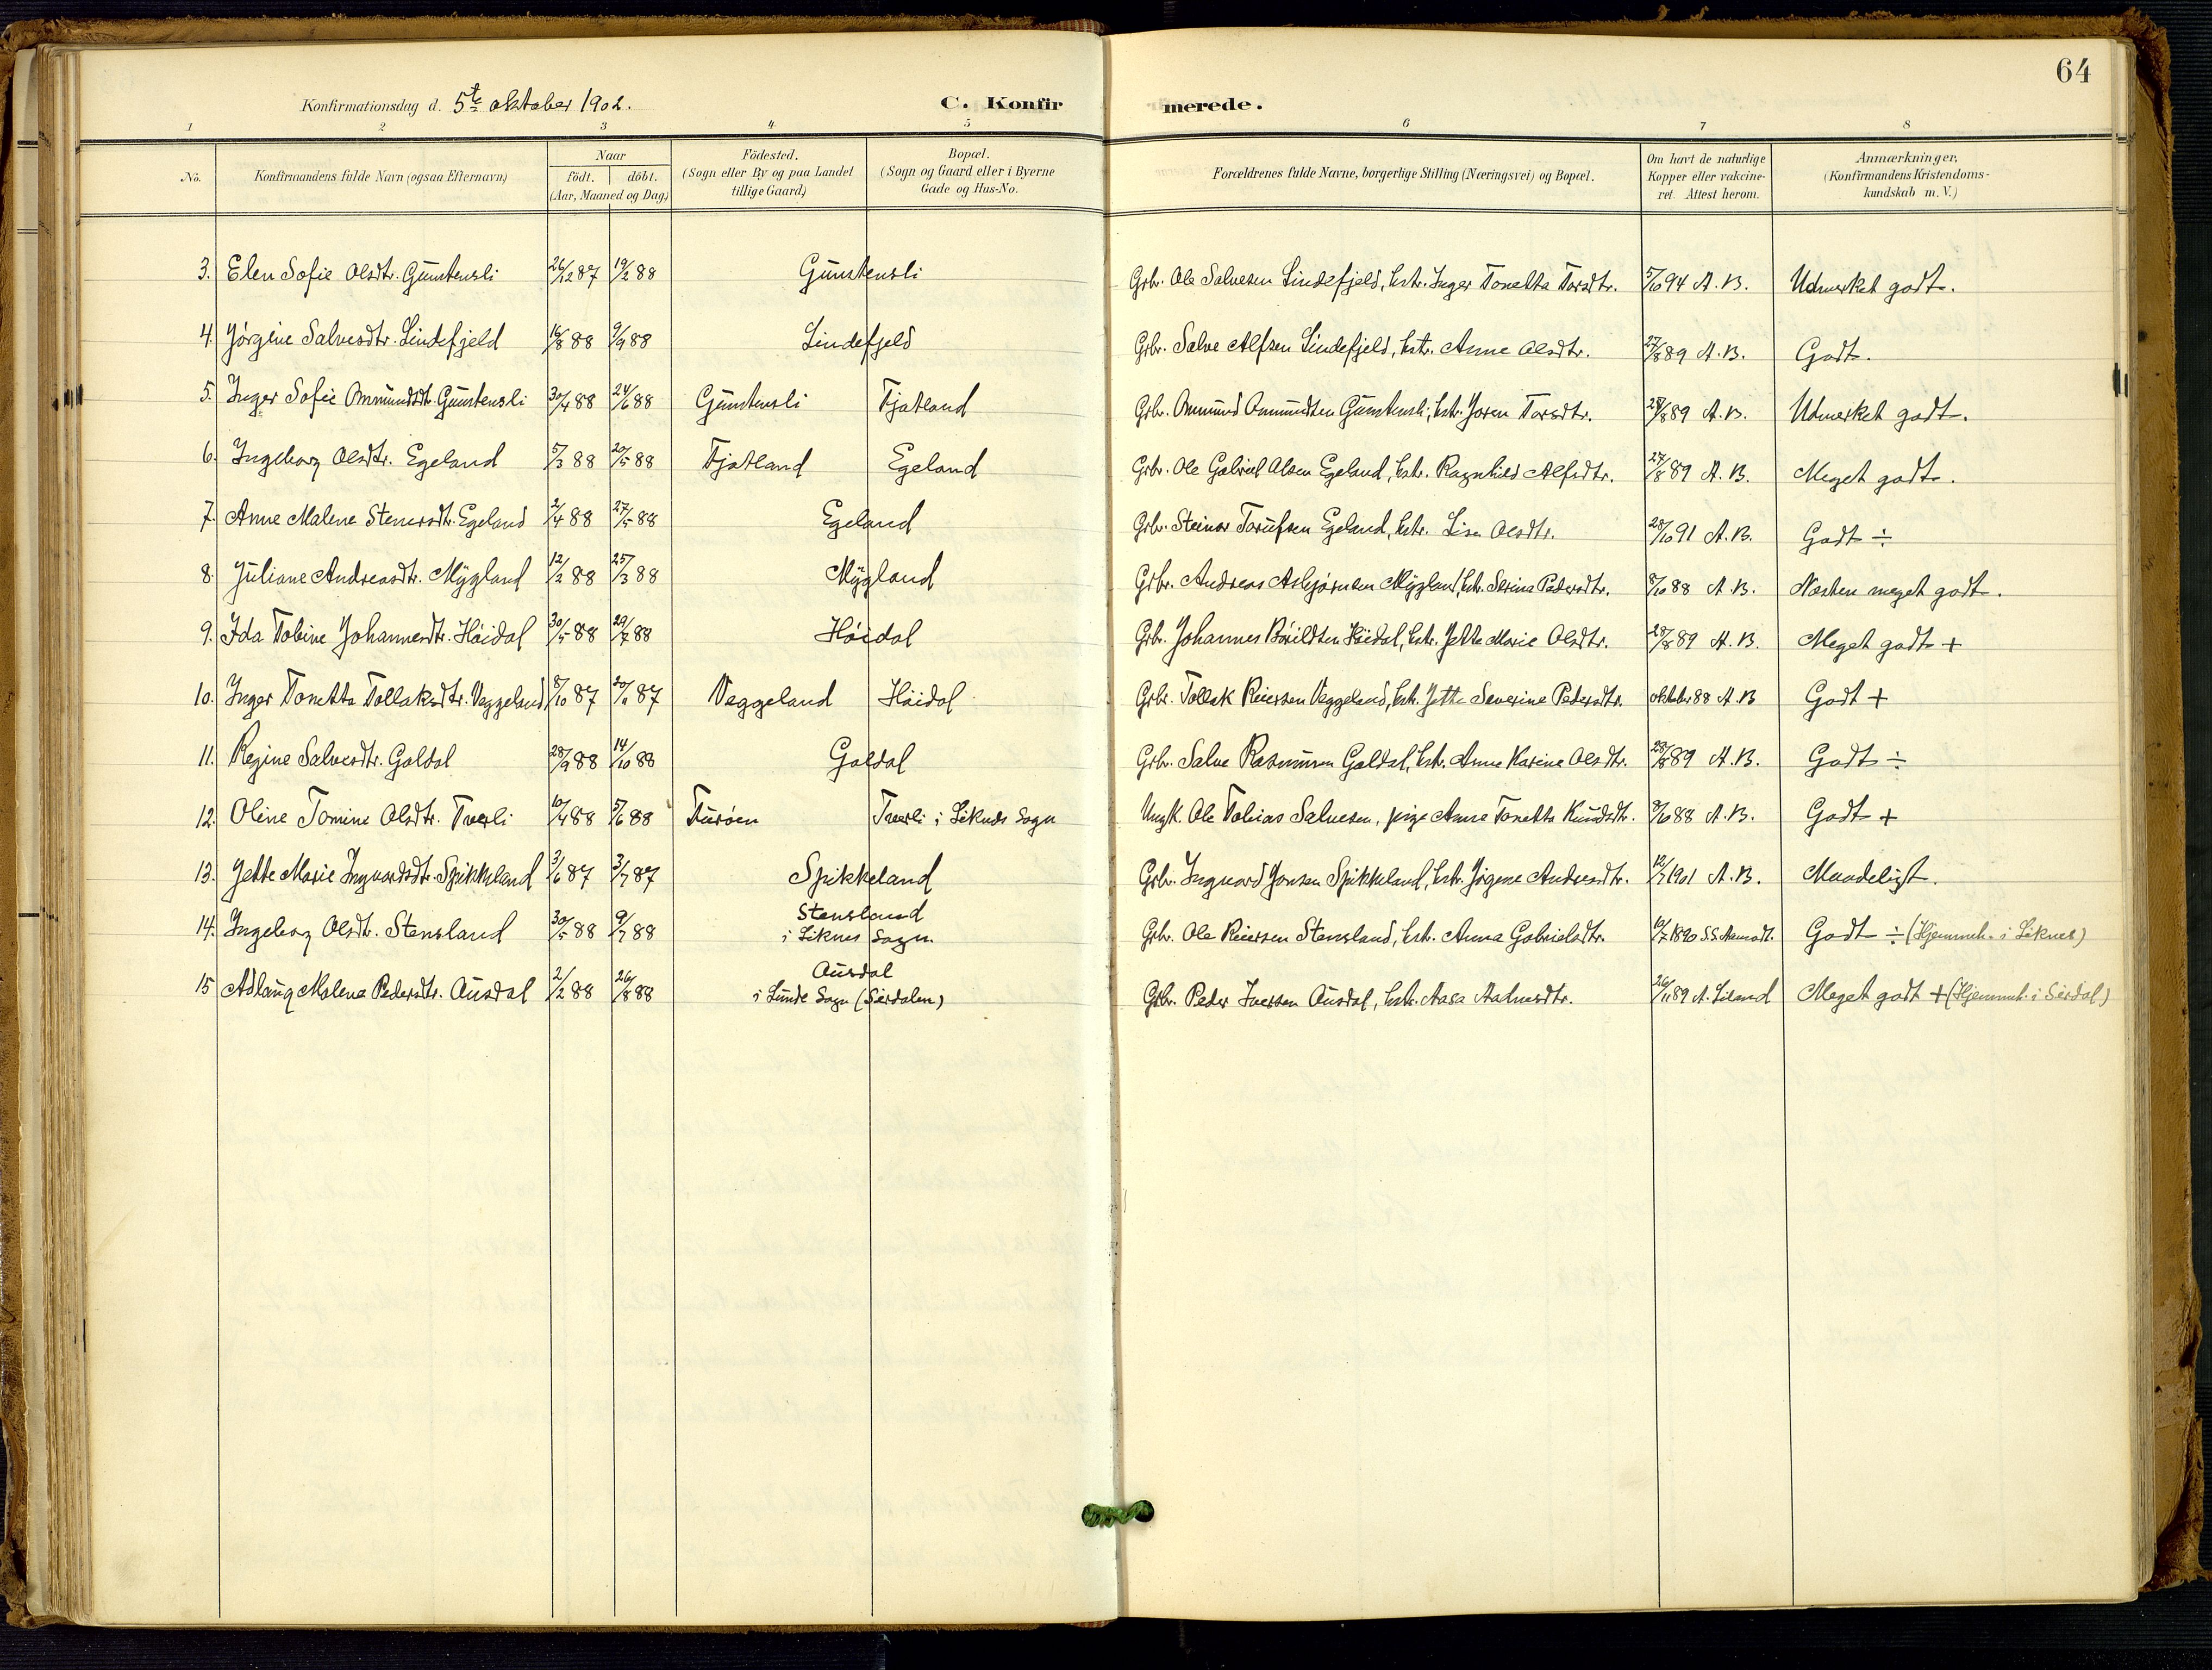 64
Konfirmationsdag d. 5te oktober 1902. C. Konfirmerede.
1 2 3 4 5 6 7 8
No. Konfirmandens fulde Navn (ogsaa Efternavn) Naar födt. döbt. (Aar, Maaned og Dag) Födested. (Sogn eller By og paa Landet tillige Gaard) Bopæl. (Sogn og Gaard eller i Byerne Gade og Hus-No. Forældrenes fulde Navne, borgerlige Stilling (Næringsvei) og Bopæl. Om havt de naturlige Kopper eller vakcineret. Attest herom. Anmærkninger, (Konfirmandens Kristendomskundskab m. V.)
3. Elen Sofie Olsdtr. Gunstensli 26/12 87 19/2 88 Gunstensli Grbr. Ole Salvesen Lindefjeld, hstr. Inger Tonetta Torsdtr. 5/10 94 A. B. Udmerket godt.
4. Jørgine Salvesdtr. Lindefjeld 16/8 88 9/9 88 Lindefjeld Grbr. Salve Alfsen Lindefjeld, hstr. Anne Olsdtr. 27/8 89 A. B. Godt.
5. Inger Sofie Ommundsdtr. Gunstensli 30/4 88 24/6 88 Gunstensli Fjotland Grbr. Ommund Ommundsen Gunstensli, hstr. Joren Torsdtr. 28/8 89 A. B. Udmerket godt.
6. Ingeborg Olsdtr. Egeland 5/3 88 20/5 88 Fjotland Egeland Grbr. Ole Gabriel Olsen Egeland, hstr. Ragnhild Alfsdtr. 27/8 89 A. B. Meget godt.
7. Anne Malene Stenersdtr. Egeland 2/4 88 27/5 88 Egeland Grbr. Steinar Torjufsen Egeland, hstr. Lisa Olsdtr. 28/10 91 A. B. Godt ÷
8. Juliane Andreasdtr. Mygland 12/2 88 25/3 88 Mygland Grbr. Andreas Asbjørnsen Mygland, hstr. Serina Pedersdtr. 8/10 88 A. B. Næsten meget godt.
9. Ida Tobine Johannesdtr. Høidal 30/5 88 29/7 88 Høidal Grbr. Johannes Bårildsen Høidal, hstr. Jette Marie Olsdtr. 28/8 89 A. B. Meget godt +
10. Inger Tonetta Tollaksdtr. Veggeland 8/10 87 20/11 87 Veggeland Høidal Grbr. Tollak Reiersen Veggeland, hstr. Jette Severine Pedersdtr. oktober 88 A. B Godt +
11. Regine Salvesdtr. Galdal 28/9 88 14/10 88 Galdal Grbr. Salve Rasmussen Galdal, hstr. Anne Karine Olsdtr. 28/8 89 A. B. Godt ÷
12. Oline Tomine Olsdtr. Tverli 10/4 88 5/6 88 Furøen Tverli i Liknes Sogn Ungk. Ole Tobias Salvesen, pige Anne Tonetta Knudsdtr. 8/10 88 A. B. Godt +
13. Jette Marie Ingvardsdtr. Spikkeland 3/6 87 3/7 87 Spikkeland Grbr. Ingvard Jonsen Spikkeland, hstr. Jørgene Andreasdtr. 12/7 1901 A. B. Maadeligt.
14. Ingeborg Olsdtr. Stensland 30/5 88 9/7 88 Stensland i Liknes Sogn Grbr. Ole Reiersen Stensland, hstr. Anna Gabrielsdtr. 10/7 1890 S.S. Aamodt. Godt ÷ (Hjemmeh. i Liknes)
15 Adlaug Malena Pedersdtr. Ausdal 2/2 88 26/8 88 Ausdal i Lunde Sogn (Sirdalen) Grbr. Peder Iversen Ausdal, hstr. Aasa Aalvesdtr. 26/11 89 A. Liland Meget godt + (Hjemmeh. i Sirdal)